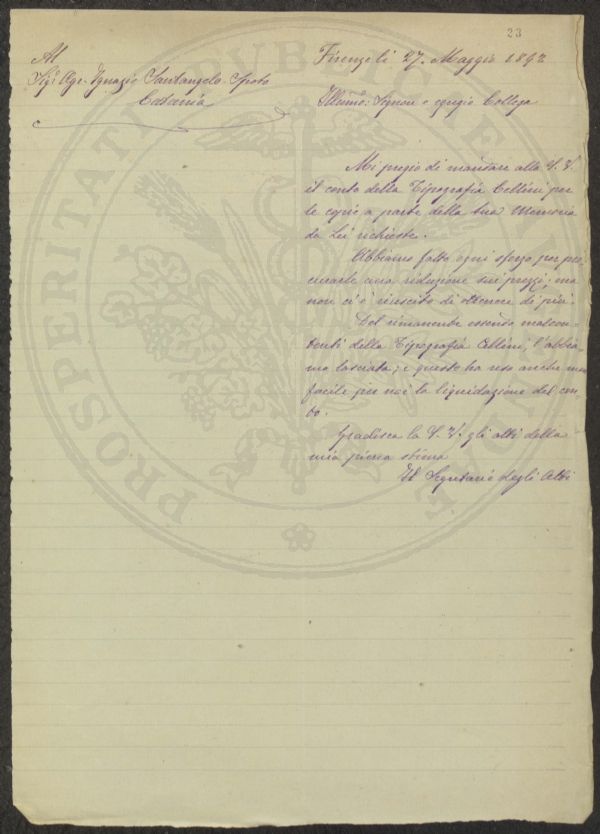 23
Al
Firenze li 27. Maggio 1892
Sigr Age. Ignazio Santangelo Spoto
Catania
Illumo: Signore e egregio Collega
Mi pregio di mandare alla S. V.
il conto della Tipografia Cellini per
le copie a parte della sua Memoria
da Lei richieste.
Abbiamo fatto ogni sforzo per pro
curarle una riduzione sui prezzi; ma
non ci è riuscito di ottenere di più.
Del rimanente essendo malcon-
tenti della Tipografia Cellini, l'abbia-
mo lasciata; e questo ha reso anche meno
facile per noi la liquidazione del con-
to.
Gradisca la S. V. gli atti della
mia piena stima
Il Segretario degli Atti
PROSPERITATI PUBLICAE